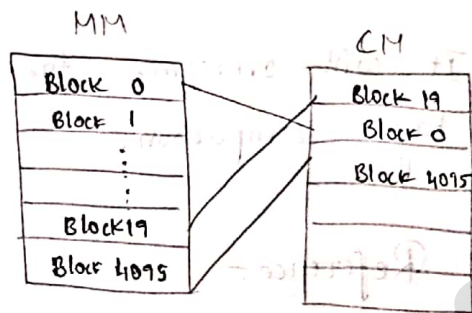 MM
Block 0
Block 1
Block 19
Block 4095
CM
Block 19
Block 0
Block 4095
Reference